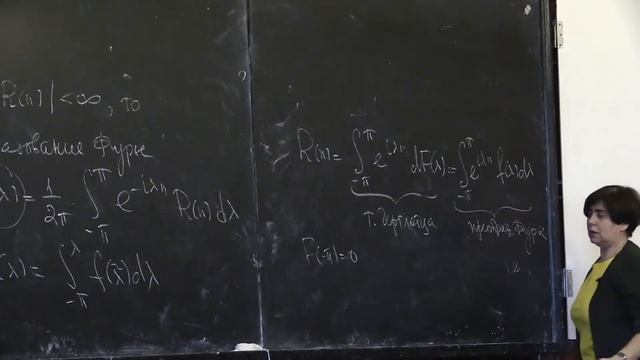 R(n)| < ∞, то
Фурье
λ) = 1/2π ∫_{-π}^{π} e^{-iλn} R(n) dλ
(λ) = ∫_{-π}^{λ} f(λ̃) dλ̃
R(n) = ∫_{-π}^{π} e^{iλn} dF(λ) = ∫_{-π}^{π} e^{iλn} f(λ) dλ
т. Герглотца преобраз. Фурье
F(-π) = 0